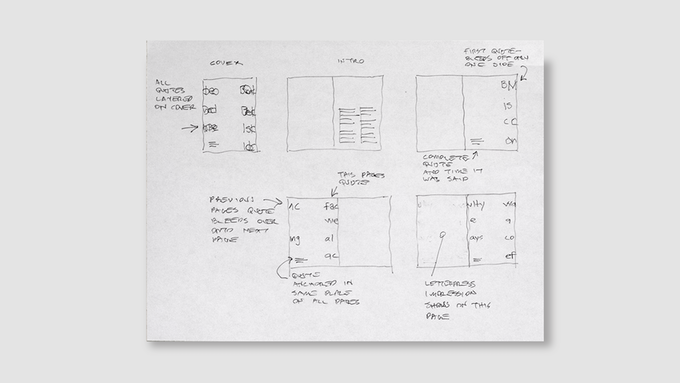 COVER
INTRO
FIRST QUOTE
BLEEDS OFF ON
ONE SIDE
ALL
QUOTES
LAYERED
ON COVER
BM
IS
CC
ON
COMPLETE
QUOTE
AND TIME IT
WAS SAID
THIS PAGES
QUOTE
PREVIOUS
PAGES QUOTE
BLEEDS OVER
ONTO NEXT
PAGE
AC
fac
we
ng
al
ac
QUOTE
ANCHORED IN
SAME PLACE
ON ALL PAGES
ulty
e
ays
e
q
co
ef
LETTERPRESS
IMPRESSION
SHOWS ON THIS
PAGE